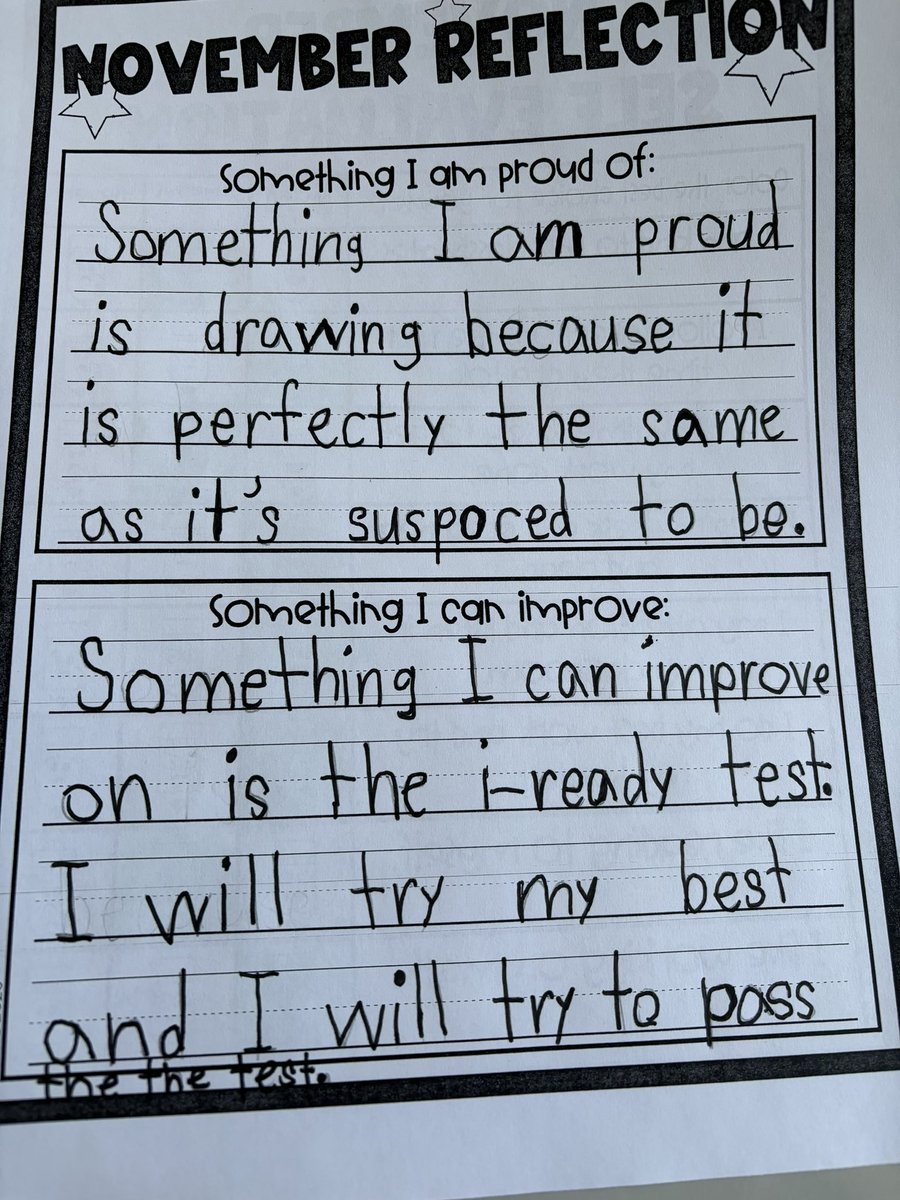 NOVEMBER REFLECTION
Something I am proud of:
Something I am proud
is drawing because it
is perfectly the same
as it's suspoced to be.
Something I can improve:
Something I can improve
on is the i-ready test.
I will try my best
and I will try to pass
the the test.